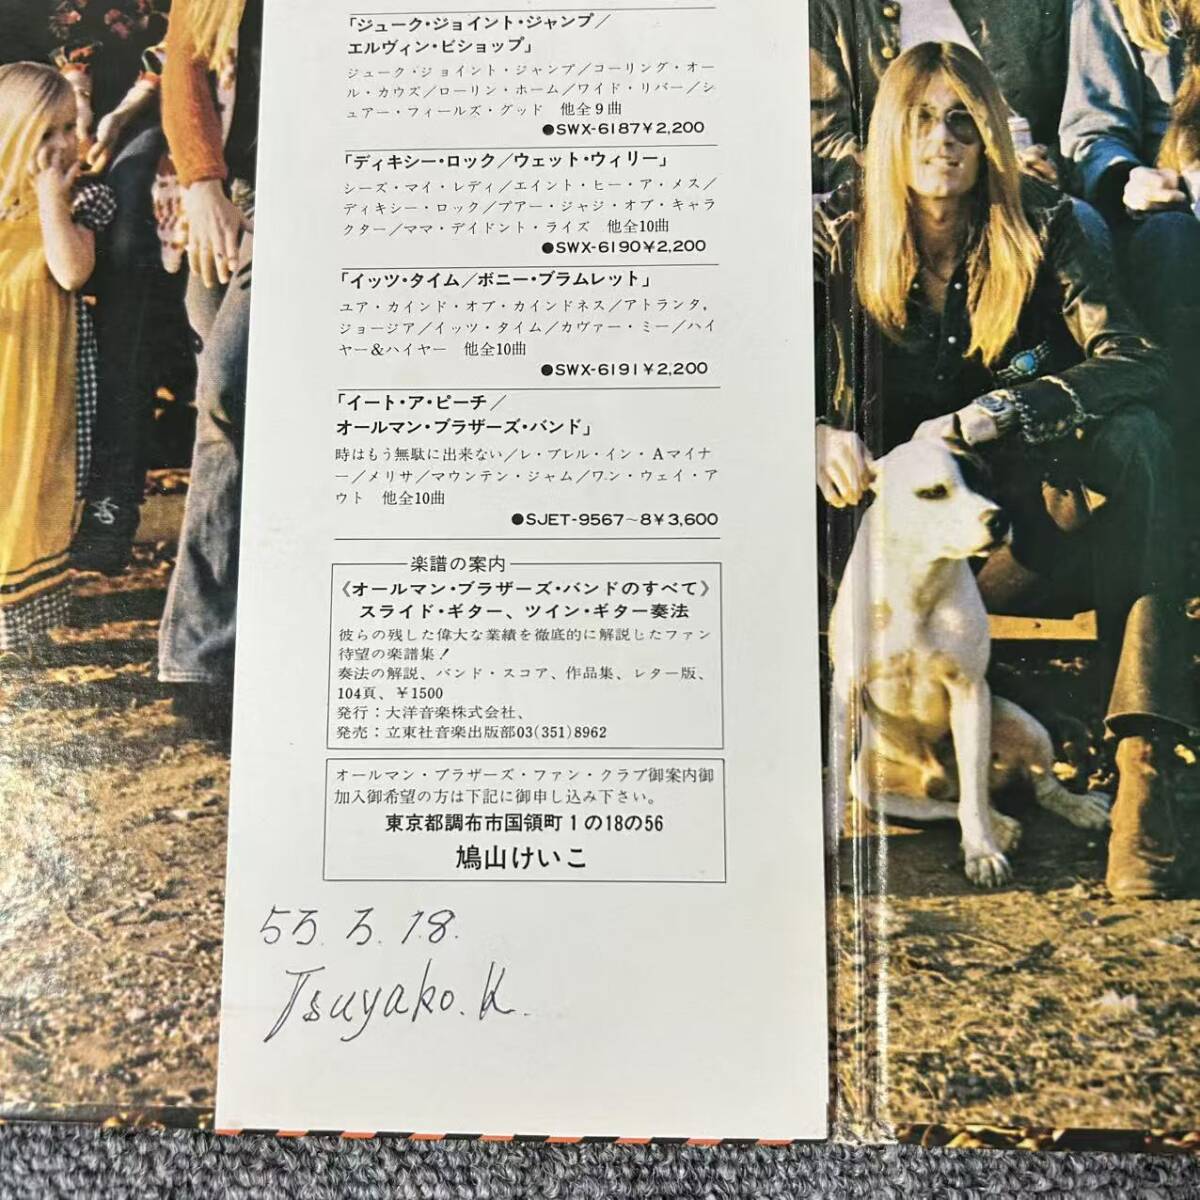 「ジューク・ジョイント・ジャンプ／
エルヴィン・ビショップ」
ジューク・ジョイント・ジャンプ／コーリング・オー
ル・カウズ／ローリン・ホーム／ワイド・リバー／シ
ュアー・フィールズ・グッド　他全9曲
●SWX-6187¥2,200
「ディキシー・ロック／ウェット・ウィリー」
シーズ・マイ・レディ／エイント・ヒー・ア・メス／
ディキシー・ロック／プアー・ジャジ・オブ・キャラ
クター／ママ・デイドント・ライズ　他全10曲
●SWX-6190¥2,200
「イッツ・タイム／ボニー・ブラムレット」
ユア・カインド・オブ・カインドネス／アトランタ,
ジョージア／イッツ・タイム／カヴァー・ミー／ハイ
ヤー&ハイヤー　他全10曲
●SWX-6191¥2,200
「イート・ア・ピーチ／
オールマン・ブラザーズ・バンド」
時はもう無駄に出来ない／レ・ブレル・イン・Aマイナ
ー／メリサ／マウンテン・ジャム／ワン・ウェイ・ア
ウト　他全10曲
●SJET-9567～8¥3,600
楽譜の案内
《オールマン・ブラザーズ・バンドのすべて》
スライド・ギター、ツイン・ギター奏法
彼らの残した偉大な業績を徹底的に解説したファン
待望の楽譜集！
奏法の解説、バンド・スコア、作品集、レター版、
104頁、¥1500
発行：大洋音楽株式会社、
発売：立東社音楽出版部03(351)8962
オールマン・ブラザーズ・ファン・クラブ御案内御
加入御希望の方は下記に御申し込み下さい。
東京都調布市国領町1の18の56
鳩山けいこ
53.3.18.
Tsuyako.K.